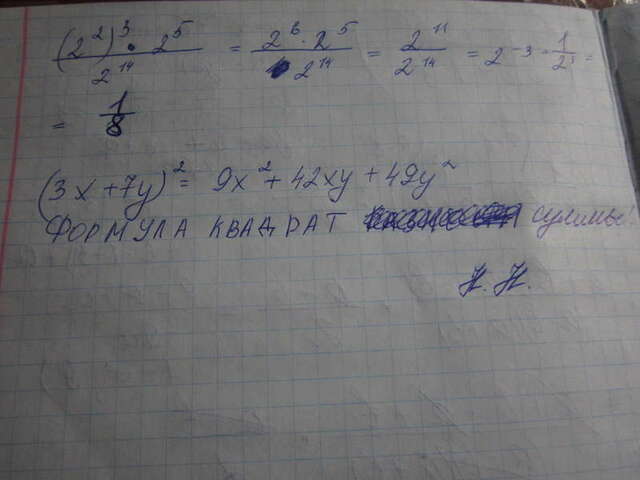 (2²)³ · 2⁵ / 2¹⁴ = 2⁶ · 2⁵ / 2¹⁴ = 2¹¹ / 2¹⁴ = 2⁻³ = 1 / 2³ =
= 1/8
(3x + 7y)² = 9x² + 42xy + 49y²
ФОРМУЛА КВАДРАТ суммы!
Н. Н.